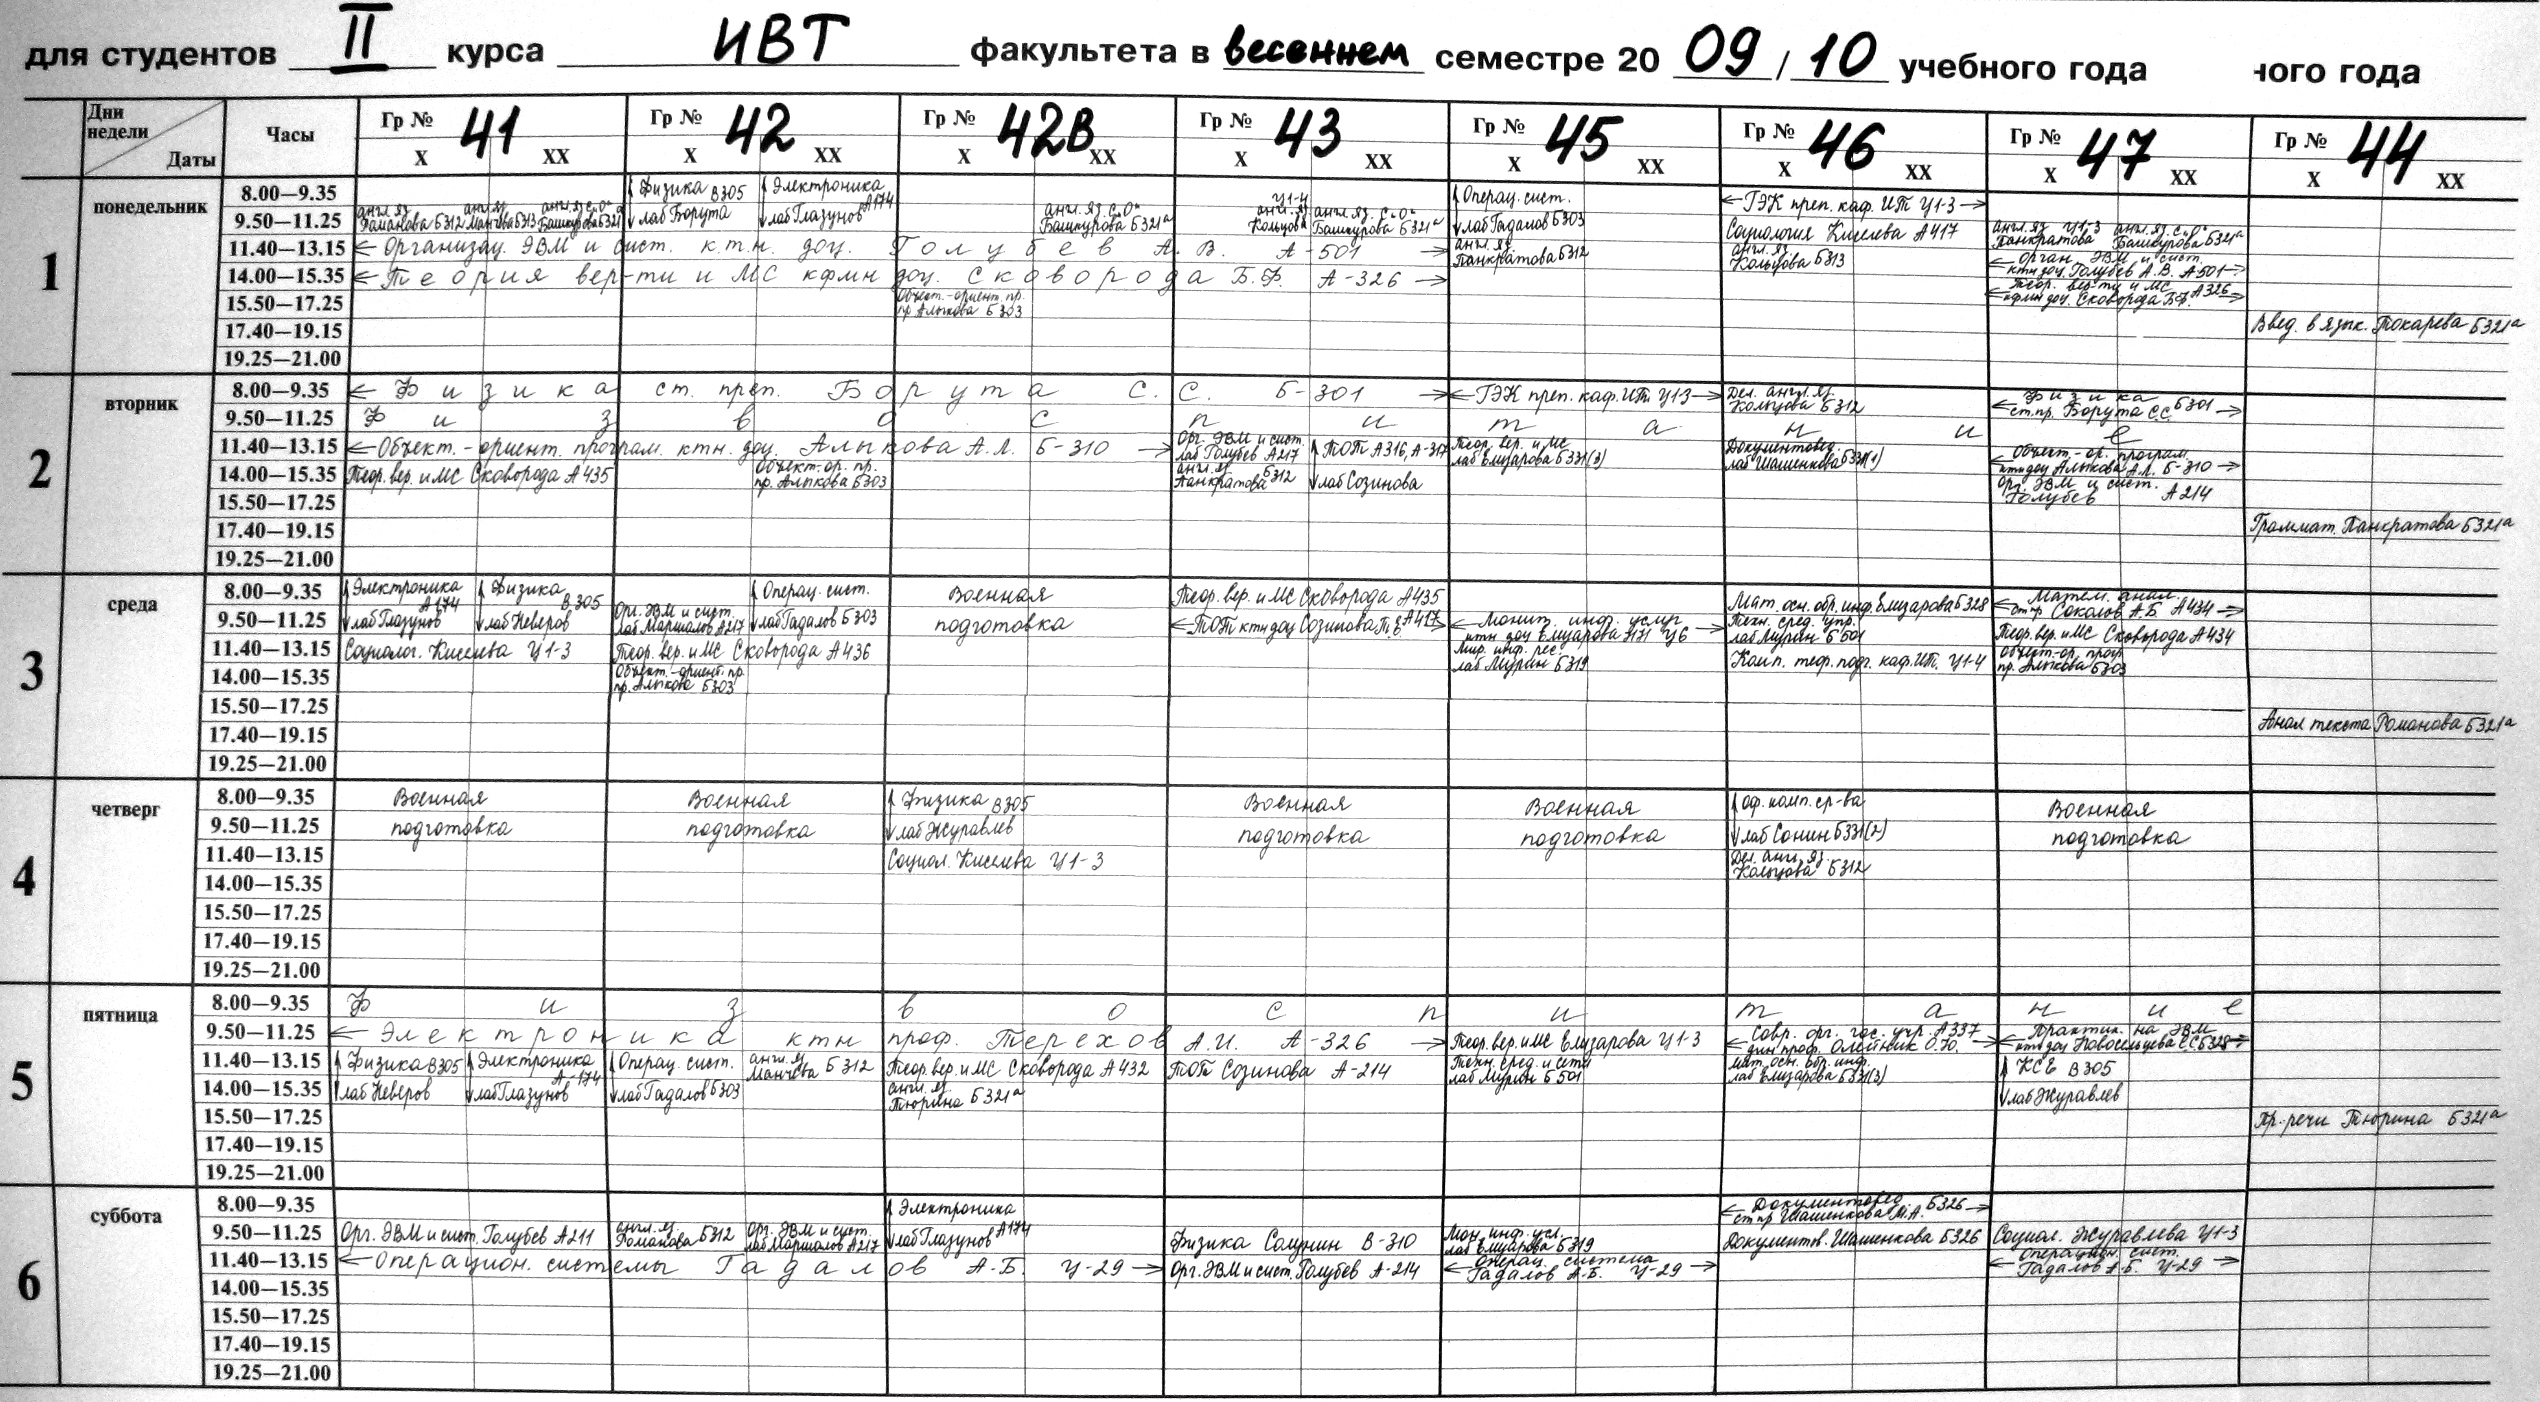 для студентов II курса ИВТ факультета в весеннем семестре 20 09 / 10 учебного года ного года
Дни недели Даты Часы Гр № 41 Гр № 42 Гр № 42В Гр № 43 Гр № 45 Гр № 46 Гр № 47 Гр № 44
X XX X XX X XX X XX X XX X XX X XX X XX
1 понедельник
8.00—9.35 Физика В305 Электроника А174 Ц1-4 Операц. сист. ←ГЭК преп. каф. ИТ Ц1-3→
9.50—11.25 англ. яз Романова Б312 англ. яз Манчева Б313 англ. яз с „0“ Башкурова Б321а лаб Борута лаб Глазунов англ. яз с „0“ Башкурова Б321а англ. яз Кольцова англ. яз. с „0“ Башкурова Б321а лаб Гадалов Б303 Социология Киселева А417 англ. яз Ц1-3 Панкратова англ. яз. с „0“ Башкурова Б321а
11.40—13.15 ← Организац. ЭВМ и сист. к.т.н. доц. Голубев А. В. А-501 → англ. яз Панкратова Б312 англ. яз Кольцова Б313 ←Орган ЭВМ и сист. ктн доц. Голубев А.В. А501→
14.00—15.35 ←Теория вер-ти и МС кфмн доц. Сковорода Б.Ф. А-326 → ←Теор. вер-ти и МС кфмн доц. Сковорода Б.Ф. А326→
15.50—17.25 Объект.-ориент. пр. пр Алыкова Б303
17.40—19.15 Введ. в язык. Токарева Б321а
19.25—21.00
2 вторник
8.00—9.35 ← Физика ст. преп. Борута С. С. Б-301 → ←ГЭК преп. каф. ИТ Ц1-3→ Дел. англ. яз. Кольцова Б312 ←Физика ст.пр. Борута С.С. Б301→
9.50—11.25 Физвоспитание
11.40—13.15 ←Объект.-ориент. програм. ктн. доц. Алыкова А.Л. Б-310 → Орг. ЭВМ и сист. лаб Голубев А217 ТОТ А316, А-317 Теор. вер. и МС лаб Елизарова Б331(3) Документовед. лаб Шашенкова Б331(1) ←Объект.-ор. програм. ктн доц Алыкова А.Л. Б-310→
14.00—15.35 Теор. вер. и МС Сковорода А435 Объект.-ор. пр. пр. Алыкова Б303 англ. яз Панкратова Б312 лаб Созинова Орг. ЭВМ и сист. Голубев А214
15.50—17.25
17.40—19.15 Граммат. Панкратова Б321а
19.25—21.00
3 среда
8.00—9.35 Электроника А174 Физика В305 Операц. сист. Военная Теор. вер. и МС Сковорода А435 Мат. осн. обр. инф. Елизарова Б328 ←Матем. анал. ст.пр Соколов А.Б А434→
9.50—11.25 лаб Глазунов лаб Неверов Орг. ЭВМ и сист. лаб Маршалов А217 лаб Гадалов Б303 подготовка ←ТОТ ктн доц Созинова Т.Е. А417→ ←Монит. инф. услуг ктн доц Елизарова Ц6→ Техн. сред. упр. лаб Мурин Б501 Теор. вер. и МС Сковорода А434
11.40—13.15 Социолог. Киселева Ц1-3 Теор. вер. и МС Сковорода А436 Мир. инф. рес. лаб Мурин Б319 Комп. каф. ИТ. Ц1-4 Объект.-ор. прогр. пр. Алыкова Б303
14.00—15.35 Объект.-ориент. пр. пр. Алыкова Б303
15.50—17.25
17.40—19.15 Анал текста Романова Б321а
19.25—21.00
4 четверг
8.00—9.35 Военная Военная Физика В305 Военная Военная Оф. комп. ср-ва Военная
9.50—11.25 подготовка подготовка лаб Журавлев подготовка подготовка лаб Сонин Б331(2) подготовка
11.40—13.15 Социол. Киселева Ц1-3 Дел. англ. яз. Кольцова Б312
14.00—15.35
15.50—17.25
17.40—19.15
19.25—21.00
5 пятница
8.00—9.35 Физвоспитание
9.50—11.25 ← Электроника ктн проф. Терехов А.И. А-326 → Теор. вер. и МС Елизарова Ц1-3 ←Совр. орг. гос. учр. А337 дин проф. Олейник О.Ю.→ ←Практик. на ЭВМ ктн доц Новосельцева С.С. Б328→
11.40—13.15 Физика В305 Электроника А-174 Операц. сист. англ. яз Манчева Б312 Теор. вер. и МС Сковорода А432 ТОТ Созинова А-214 Техн. сред. и сети лаб Мурин Б501 Мат. осн. обр. инф. лаб Елизарова Б331(3) КСЕ В305
14.00—15.35 лаб Неверов лаб Глазунов лаб Гадалов Б303 англ. яз Тюрина Б321а лаб Журавлев
15.50—17.25 Пр. речи Тюрина Б321а
17.40—19.15
19.25—21.00
6 суббота
8.00—9.35 Электроника ←Документовед. ст пр Шашенкова М.А. Б326→
9.50—11.25 Орг. ЭВМ и сист. Голубев А211 англ. яз. Романова Б312 Орг. ЭВМ и сист. лаб Маршалов А217 лаб Глазунов А174 Физика Солунин В-310 Мон. инф. усл. лаб Елизарова Б319 Документов. Шашенкова Б326 Социол. Журавлева Ц1-3
11.40—13.15 ←Операцион. системы Гадалов А.Б. Ц-29 → Орг. ЭВМ и сист. Голубев А-214 ←Операц. система Гадалов А.Б. Ц-29→ ←Операцион. сист. Гадалов А.Б. Ц-29→
14.00—15.35
15.50—17.25
17.40—19.15
19.25—21.00